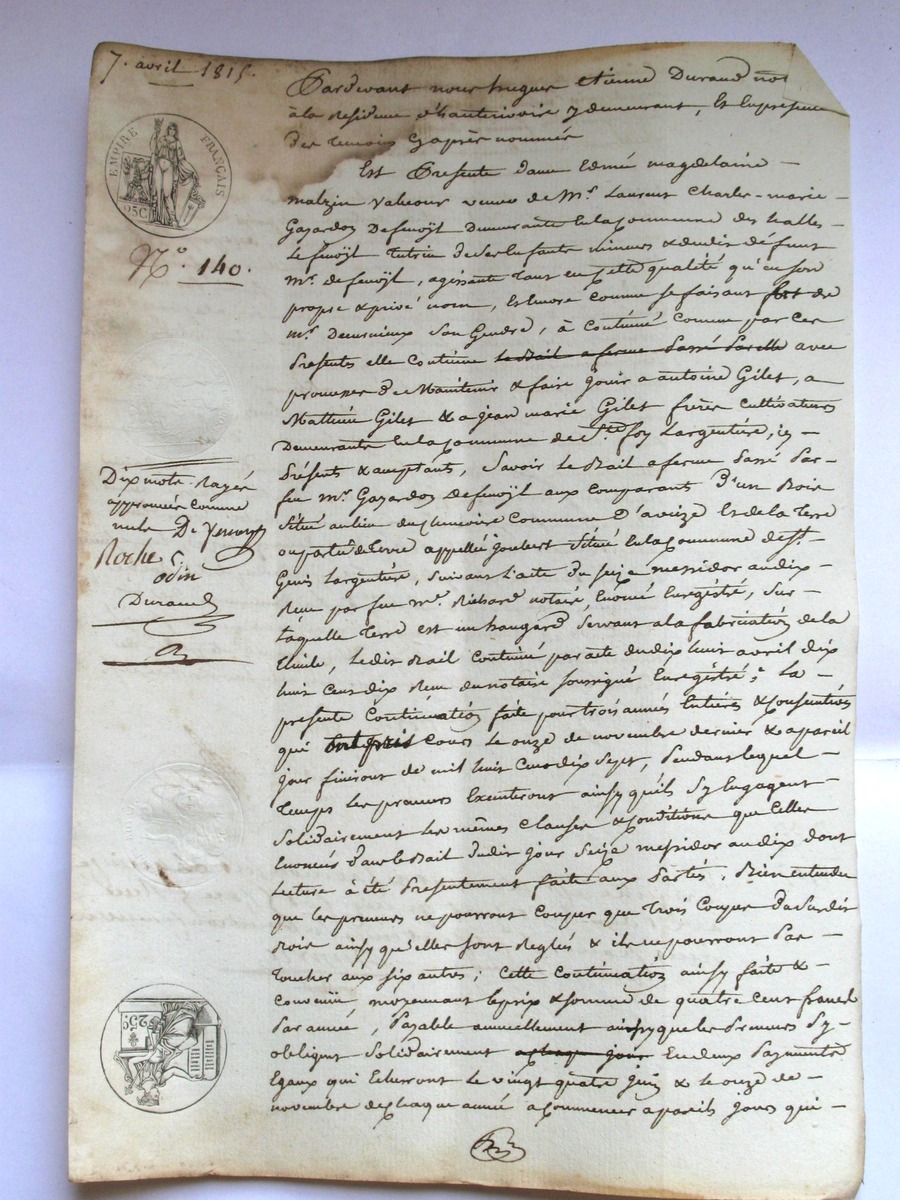 7. avril 1815.
EMPIRE FRANÇAIS
95C
N.º 140.
Dix mots Rayés
approuvés comme
nuls De
Roche
odin
Durand
25C
Pardevant nous hugues etienne Durand not
à la Residence d'hauterivoire y demeurant, Et En presence
des Temoins Cyaprès nommés
Est Presente dame Edmé magdelaine —
malzin Valcour veuve de Mr. Laurent Charles-marie —
Gazardon De fenoÿl Demeurante En la Commune des halles —
Le fenoÿl Tutrice de Ses Enfants mineurs & dudit défunt
Mr. de fenoÿl, agissante Tant en Cette qualité qu'en son
propre & privé nom, Et Encore Comme se faisant fort de
Mr. Son Gendre, à Continué Comme par Ces
Presentes elle Continue le Bail a ferme Passé Par elle avec
promesses De Maintenir & faire jouir a antoine Gilet, a
Mathieu Gilet & a jean marie Gilet frères Cultivateurs
Demeurants En la Commune de Ste. foy Largentière, icy —
Présents & aceptants, Savoir Le Bail a ferme Passé Par —
feu Mr. Gazardon De fenoÿl aux Comparants D'un Bois
Situé au lieu du Commune D'aveize Et de la Terre
ou partie de Terre appellée joubert Située En la Commune de St.
Genis Largentière, Suivant L'acte du Seize messidor an dix —
Reçu par feu Mr. Richard notaire, Enoncé Enregistré, Sur —
Laquelle Terre est un hangard Servant a la fabrication de la
Thuile, Le dit Bail Continué par acte du dix huit avril dix
huit Cent dix Reçu du notaire Soussigné Enregistré; La —
presente Continuation faite pour trois années Entières & Consecutives
qui ont pris Cours Le onze de novembre dernier & a pareil
jour finiront de mil huit Cent dix Sept, Pendant lequel —
Temps Les preneurs Executeront ainsy qu'ils S'y Engagent
Solidairement Les mêmes Clauses & Conditions que Celles
Enoncés dans le Bail dudit jour Seize messidor an dix dont
Lecture à été Presentement faite aux Parties. Bien entendu
que les preneurs ne pourront Couper que Trois Coupes Du Susdit
Bois ainsy qu'elles sont Reglés & ils ne pourront Pas —
Toucher aux Six autres; Cette Continuation ainsy faite & —
Convenüe, moyennant le prix & Somme de quatre Cent francs
Par année, Payable annuellement ainsy que les Preneurs S'y —
obligent Solidairement a chaque jour En deux Payments
Egaux qui Echerront Le vingt quatre juin & le onze de —
novembre de Chaque année a Commencer a pareils jours qui —